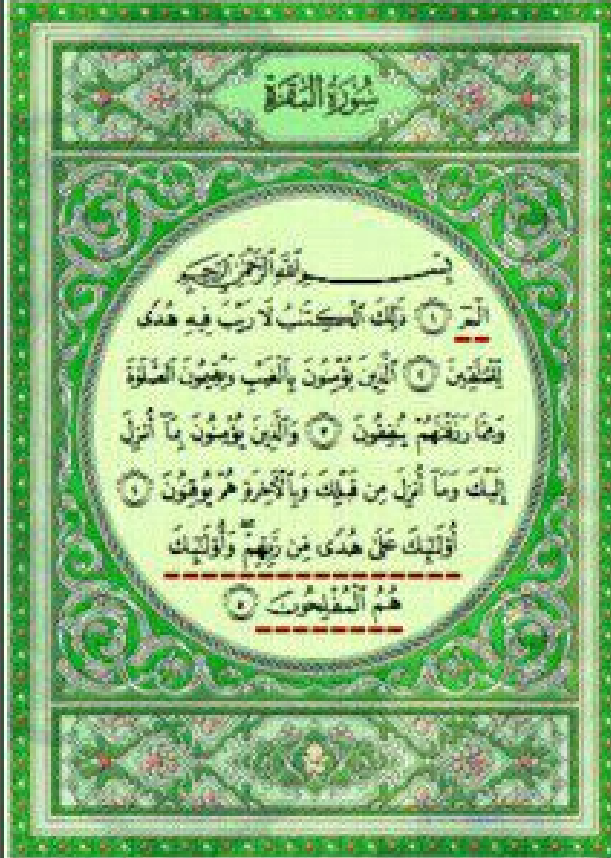 سُورَةُ الْبَقَرَةِ
بِسْمِ اللَّهِ الرَّحْمَٰنِ الرَّحِيمِ
الٓمٓ ۝١ ذَٰلِكَ ٱلْكِتَٰبُ لَا رَيْبَ فِيهِ هُدًى
لِّلْمُتَّقِينَ ۝٢ ٱلَّذِينَ يُؤْمِنُونَ بِٱلْغَيْبِ وَيُقِيمُونَ ٱلصَّلَوٰةَ
وَمِمَّا رَزَقْنَٰهُمْ يُنفِقُونَ ۝٣ وَٱلَّذِينَ يُؤْمِنُونَ بِمَآ أُنزِلَ
إِلَيْكَ وَمَآ أُنزِلَ مِن قَبْلِكَ وَبِٱلْءَاخِرَةِ هُمْ يُوقِنُونَ ۝٤
أُو۟لَٰٓئِكَ عَلَىٰ هُدًى مِّن رَّبِّهِمْ ۖ وَأُو۟لَٰٓئِكَ
هُمُ ٱلْمُفْلِحُونَ ۝٥